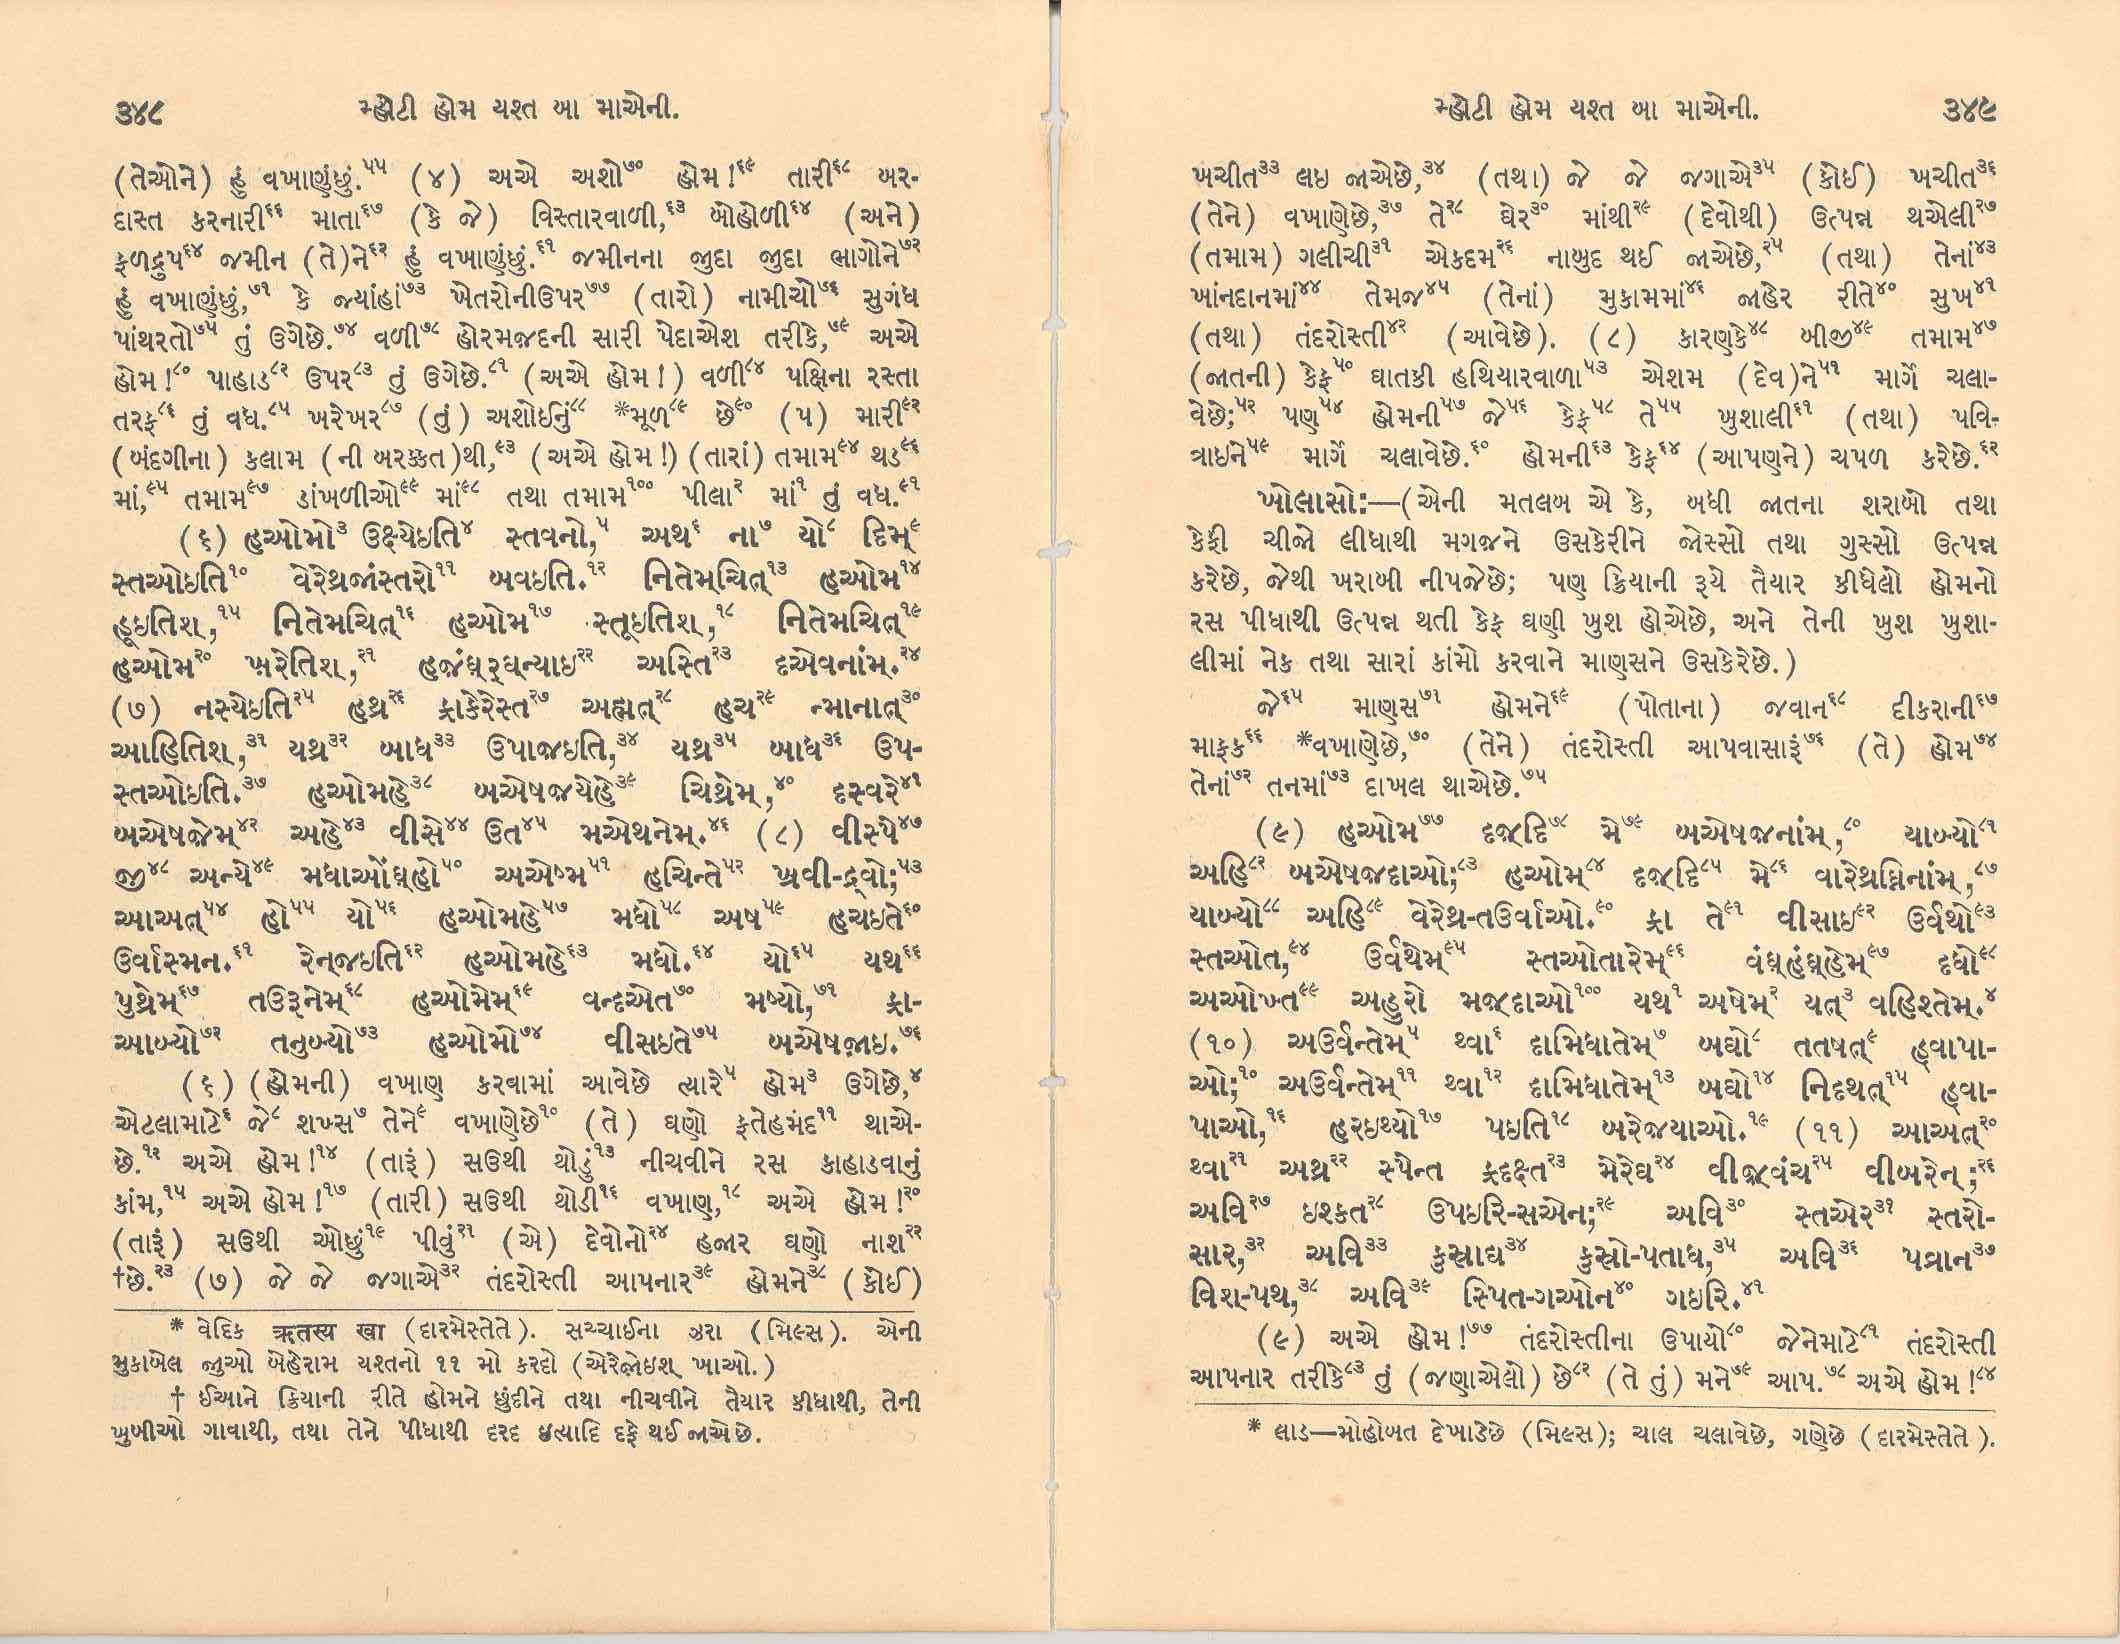 ૩૪૮ મ્હોટી હોમ યશ્ત બા માએની.
(તેઓને) હું વખાણુંછું.૫૫ (૪) અએ અશો૭૦ હોમ!૬૯ તારી૬૮ બર-
દાસ્ત કરનારી૬૬ માતા૬૭ (કે જે) વિસ્તારવાળી,૬૩ બોહોળી૬૪ (અને)
ફળદ્રુપ૬૪ જમીન (તે)ને૬૨ હું વખાણુંછું.૬૧ જમીનના જુદા જુદા ભાગોને૭૨
હું વખાણુંછું,૭૧ કે જ્યાંહાં૭૩ ખેતરોનીઉપર૭૭ (તારો) નામીચો૭૬ સુગંધ
પાંથરતો૭૫ તું ઉગેછે.૭૪ વળી૭૮ હોરમજ્દની સારી પેદાએશ તરીકે,૭૯ અએ
હોમ!૮૦ પાહાડ૮૨ ઉપર૮૩ તું ઉગેછે.૮૧ (અએ હોમ!) વળી૮૪ પક્ષિના રસ્તા
તરફ૮૬ તું વધ.૮૫ ખરેખર૮૭ (તું) અશોઇનું૮૮ *મૂળ૮૯ છે૯૦ (૫) મારી૯૨
(બંદગીના) કલામ (ની બરક્કત)થી,૯૩ (અએ હોમ!) (તારાં) તમામ૯૪ થડ૯૬
માં,૯૫ તમામ૯૭ ડાંખળીઓ૯૯ માં૯૮ તથા તમામ૧૦૦ પીલા૨ માં૧ તું વધ.૯૧
(૬) હઓમો૩ ઉક્ષ્યેઇતિ૪ સ્તવનો,૫ અથ૬ ના૭ યો૮ દિમ્૯
સ્તઓઇતિ૧૦ વેરેથ્રજાંસ્તરો૧૧ બવઇતિ.૧૨ નિતેમ્ચિત્૧૩ હઓમ૧૪
હૂઇતિશ,૧૫ નિતેમચિત્૧૬ હઓમ૧૭ સ્તૂઇતિશ,૧૮ નિતેમચિત્૧૯
હઓમ૨૦ ખ઼રેતિશ,૨૧ હજંઘ઼્રઘ્ન્યાઇ૨૨ અસ્તિ૨૩ દએવનાંમ્.૨૪
(૭) નસ્યેઇતિ૨૫ હથ્ર૨૬ ફ્રાકેરેસ્ત૨૭ અહ્મત્૨૮ હચ૨૯ ન્માનાત્૩૦
આહિતિશ,૩૧ યથ્ર૩૨ બાધ૩૩ ઉપાજ઼ઇતિ,૩૪ યથ્ર૩૫ બાધ૩૬ ઉપ-
સ્તઓઇતિ.૩૭ હઓમહે૩૮ બએષજ઼્યેહે૩૯ ચિથ્રેમ્,૪૦ દસ્વરે૪૧
બએષજ઼ેમ્૪૨ અહે૪૩ વીસે૪૪ ઉત૪૫ મએથનેમ્.૪૬ (૮) વીસ્પે૪૭
જી૪૮ અન્યે૪૯ મધાઓંઘ઼્હો૫૦ અએષ્મ૫૧ હચિન્તે૫૨ ખ઼્રવી-દ્ર્વો;૫૩
આઅત્૫૪ હો૫૫ યો૫૬ હઓમહે૫૭ મધો૫૮ અષ૫૯ હચઇતે૬૦
ઉર્વાસ્મન.૬૧ રેન્જઇતિ૬૨ હઓમહે૬૩ મધો.૬૪ યો૬૫ યથ૬૬
પુથ્રેમ્૬૭ તઉરૂનેમ્૬૮ હઓમેમ્૬૯ વન્દએત૭૦ મષ્યો,૭૧ ફ્રા-
આબ્યો૭૨ તનુબ્યો૭૩ હઓમો૭૪ વીસઇતે૭૫ બએષજ઼ાઇ.૭૬
(૬) (હોમની) વખાણ કરવામાં આવેછે ત્યારે૫ હોમ૩ ઉગેછે,૪
એટલામાટે૬ જે૮ શખ્સ૭ તેને૯ વખાણેછે૧૦ (તે) ઘણો ફતેહમંદ૧૧ થાએ-
છે.૧૨ અએ હોમ!૧૪ (તારૂં) સઉથી થોડું૧૩ નીચવીને રસ કાહાડવાનું
કાંમ,૧૫ અએ હોમ!૧૭ (તારી) સઉથી થોડી૧૬ વખાણ,૧૮ અએ હોમ!૨૦
(તારૂં) સઉથી ઓછું૧૯ પીવું૨૧ (એ) દેવોનો૨૪ હજાર ઘણો નાશ૨૨
†છે.૨૩ (૭) જે જે જગાએ૩૨ તંદરોસ્તી આપનાર૩૯ હોમને૩૮ (કોઈ)
* વેદિક ऋतस्य खा (દારમેસ્તેતે). સચ્ચાઈના ઝરા (મિલ્સ). એની
મુકાબેલ જુઓ બેહેરામ યશ્તનો ૧૧ મો કરદો (એરેજ઼ોઇશ્ ખાઓ.)
† ઈઆને ક્રિયાની રીતે હોમને છુંદીને તથા નીચવીને તૈયાર કીધાથી, તેની
ખુબીઓ ગાવાથી, તથા તેને પીધાથી દરદ ઇત્યાદિ દફે થઈ જાએછે.
મ્હોટી હોમ યશ્ત બા માએની. ૩૪૯
ખચીત૩૩ લઇ જાએછે,૩૪ (તથા) જે જે જગાએ૩૫ (કોઈ) ખચીત૩૬
(તેને) વખાણેછે,૩૭ તે૨૮ ઘેર૩૦ માંથી૨૯ (દેવોથી) ઉત્પન્ન થએલી૨૭
(તમામ) ગલીચી૩૧ એકદમ૨૬ નાબુદ થઈ જાએછે,૨૫ (તથા) તેનાં૪૩
ખાંનદાનમાં૪૪ તેમજ૪૫ (તેનાં) મુકામમાં૪૬ જાહેર રીતે૪૦ સુખ૪૧
(તથા) તંદરોસ્તી૪૨ (આવેછે). (૮) કારણકે૪૮ બીજી૪૯ તમામ૪૭
(જાતની) કેફ૫૦ ઘાતકી હથિયારવાળા૫૩ એશમ (દેવ)ને૫૧ માર્ગે ચલા-
વેછે;૫૨ પણ૫૪ હોમની૫૭ જે૫૬ કેફ૫૮ તે૫૫ ખુશાલી૬૧ (તથા) પવિ-
ત્રાઇને૫૯ માર્ગે ચલાવેછે.૬૦ હોમની૬૩ કેફ૬૪ (આપણને) ચપળ કરેછે.૬૨
ખોલાસો:—(એની મતલબ એ કે, બધી જાતના શરાબો તથા
કેફી ચીજો લીધાથી મગજને ઉસકેરીને જોસ્સો તથા ગુસ્સો ઉત્પન્ન
કરેછે, જેથી ખરાબી નીપજેછે; પણ ક્રિયાની રૂયે તૈયાર કીધેલો હોમનો
રસ પીધાથી ઉત્પન્ન થતી કેફ ઘણી ખુશ હોએછે, અને તેની ખુશ ખુશા-
લીમાં નેક તથા સારાં કાંમો કરવાને માણસને ઉસકેરેછે.)
જે૬૫ માણસ૭૧ હોમને૬૯ (પોતાના) જવાન૬૮ દીકરાની૬૭
માફક૬૬ *વખાણેછે,૭૦ (તેને) તંદરોસ્તી આપવાસારૂં૭૬ (તે) હોમ૭૪
તેનાં૭૨ તનમાં૭૩ દાખલ થાએછે.૭૫
(૯) હઓમ૭૭ દજ઼્દિ૭૮ મે૭૯ બએષજ઼નાંમ્,૮૦ યાબ્યો૮૧
અહિ૮૨ બએષજ઼દાઓ;૮૩ હઓમ્૮૪ દજ઼્દિ૮૫ મે૮૬ વારેથ્રઘ્નિનાંમ્,૮૭
યાબ્યો૮૮ અહિ૮૯ વેરેથ્ર-તઉર્વાઓ.૯૦ ફ્રા તે૯૧ વીસાઇ૯૨ ઉર્વથો૯૩
સ્તઓત,૯૪ ઉર્વથેમ્૯૫ સ્તઓતારેમ્૯૬ વંઘ઼્હંઘ઼્હેમ્૯૭ દધો૯૮
અઓખ્ત૯૯ અહુરો મજ઼્દાઓ૧૦૦ યથ૧ અષેમ્૨ યત્૩ વહિશ્તેમ્.૪
(૧૦) અઉર્વન્તેમ્૫ થ્વા૬ દામિધાતેમ્૭ બઘો૮ તતષત્૯ હ્વાપા-
ઓ;૧૦ અઉર્વન્તેમ્૧૧ થ્વા૧૨ દામિધાતેમ્૧૩ બઘો૧૪ નિદથત્૧૫ હ્વા-
પાઓ,૧૬ હરઇથ્યો૧૭ પઇતિ૧૮ બરેજ઼યાઓ.૧૯ (૧૧) આઅત્૨૦
થ્વા૨૧ અથ્ર૨૨ સ્પેન્ત ફ્રદક્ષ્ત૨૩ મેરેઘ૨૪ વીજ઼્વંચ૨૫ વીબરેન્;૨૬
અવિ૨૭ ઇશ્કત૨૮ ઉપઇરિ-સએન;૨૯ અવિ૩૦ સ્તએર૩૧ સ્તરો-
સાર,૩૨ અવિ૩૩ કુસ્રાધ૩૪ કુસ્રો-પતાધ,૩૫ અવિ૩૬ પવ્રાન૩૭
વિશ્-પથ,૩૮ અવિ૩૯ સ્પિત-ગઓન૪૦ ગઇરિ.૪૧
(૯) અએ હોમ!૭૭ તંદરોસ્તીના ઉપાયો૮૦ જેનેમાટે૮૧ તંદરોસ્તી
આપનાર તરીકે૮૩ તું (જણાએલો) છે૮૨ (તે તું) મને૭૯ આપ.૭૮ અએ હોમ!૮૪
* લાડ—મોહોબત દેખાડેછે (મિલ્સ); ચાલ ચલાવેછે, ગણેછે (દારમેસ્તેતે).